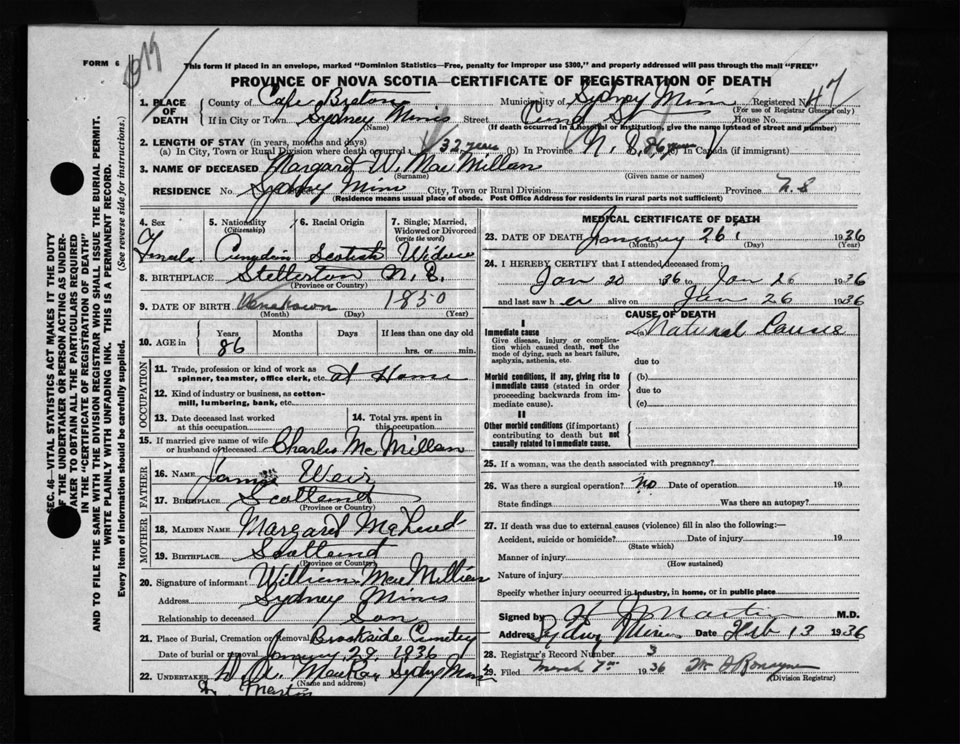 FORM 6
This form if placed in an envelope, marked "Dominion Statistics—Free, penalty for improper use $300," and properly addressed will pass through the mail "FREE"
PROVINCE OF NOVA SCOTIA—CERTIFICATE OF REGISTRATION OF DEATH
1. PLACE OF DEATH County of Cape Breton Municipality of Sydney Mines Registered No. 47
(For use of Registrar General only)
If in City or Town Sydney Mines Street House No.
(Name) (If death occurred in a hospital or institution, give the name instead of street and number)
2. LENGTH OF STAY (in years, months and days)
(a) In City, Town or Rural Division where death occurred 32 years (b) In Province N.S. 86 years (c) In Canada (if immigrant)
3. NAME OF DECEASED Margaret W. MacMillan
(Surname) (Given name or names)
RESIDENCE No. Sydney Mines City, Town or Rural Division Province N.S
(Residence means usual place of abode. Post Office Address for residents in rural parts not sufficient)
4. Sex 5. Nationality (Citizenship) 6. Racial Origin 7. Single, Married, Widowed or Divorced (write the word)
Female Canadian Scotish Widow
8. BIRTHPLACE Stellerton N.S.
(Province or Country)
9. DATE OF BIRTH Unnknown 1850
(Month) (Day) (Year)
10. AGE in Years Months Days If less than one day old
86 hrs. or min.
OCCUPATION
11. Trade, profession or kind of work as spinner, teamster, office clerk, etc. at Home
12. Kind of industry or business, as cotton-mill, lumbering, bank, etc.
13. Date deceased last worked at this occupation 14. Total yrs. spent in this occupation
15. If married give name of wife or husband of deceased Charles McMillan
FATHER
16. NAME James Weir
17. BIRTHPLACE Scotland
(Province or Country)
MOTHER
18. MAIDEN NAME Margaret McLeod
19. BIRTHPLACE Scotland
(Province or Country)
20. Signature of informant William MacMillian
Address Sydney Mines
Relationship to deceased Son
21. Place of Burial, Cremation or Removal Brookside Cemetey
Date of burial or removal January 29, 1936
22. UNDERTAKER MacKay Sydney Mines
(Name and address)
Dr Martin
MEDICAL CERTIFICATE OF DEATH
23. DATE OF DEATH January 26 1936
(Month) (Day) (Year)
24. I HEREBY CERTIFY that I attended deceased from:
Jan 20 1936 to Jan 26 1936
and last saw her alive on Jan 26 1936
CAUSE OF DEATH
I
Immediate cause
Give disease, injury or complication which caused death, not the mode of dying, such as heart failure, asphyxia, asthenia, etc.
Natural Causes
due to
Morbid conditions, if any, giving rise to immediate cause (stated in order proceeding backwards from immediate cause).
(b)
due to
(c)
II
Other morbid conditions (if important) contributing to death but not causally related to immediate cause.
25. If a woman, was the death associated with pregnancy?
26. Was there a surgical operation? No Date of operation 19
State findings Was there an autopsy?
27. If death was due to external causes (violence) fill in also the following:—
Accident, suicide or homicide? Date of injury 19
(State which)
Manner of injury
(How sustained)
Nature of injury
Specify whether injury occurred in industry, in home, or in public place
Signed by Martin M.D.
Address Sydney Mines Date Feb 13 1936
28. Registrar's Record Number 3
29. Filed March 7th 1936
(Division Registrar)
SEC. 46—VITAL STATISTICS ACT MAKES IT THE DUTY OF THE UNDERTAKER OR PERSON ACTING AS UNDERTAKER TO OBTAIN ALL THE PARTICULARS REQUIRED IN THE "CERTIFICATE OF REGISTRATION OF DEATH" AND TO FILE THE SAME WITH THE DIVISION REGISTRAR WHO SHALL ISSUE THE BURIAL PERMIT.
WRITE PLAINLY WITH UNFADING INK. THIS IS A PERMANENT RECORD.
Every item of information should be carefully supplied. (See reverse side for instructions.)